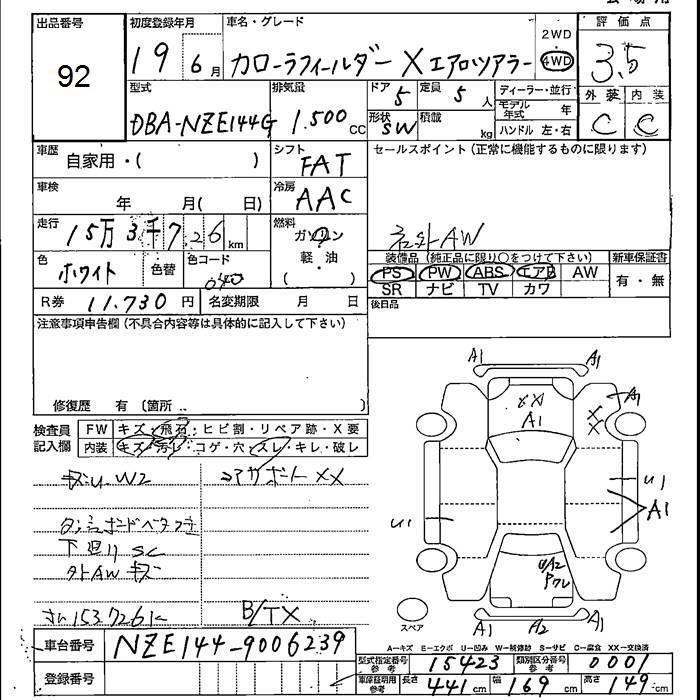 出品番号 初度登録年月 車名・グレード 評価点
92 19年 6月 カローラフィールダー X エアロツアラー 2WD 4WD 3.5
型式 排気量 ドア 5 定員 5人 ディーラー・並行 外装 内装
DBA-NZE144G 1.500cc 形状 SW 積載 kg モデル年式 年 C C
ハンドル 左・右
車歴 自家用・( ) シフト FAT セールスポイント(正常に機能するものに限ります)
車検 年 月( 日) 冷房 AAC
走行 15万3千726km 燃料 ガソリン 社外AW
色 ホワイト 色替 色コード 040 軽・油 ( )
装備品(純正品に限り○をつけて下さい) 新車保証書
PS PW ABS エアB AW 有・無
SR ナビ TV カワ
R券 11.730円 名変期限 月 日 後日品
注意事項申告欄(不具合内容等は具体的に記入して下さい)
修復歴 有 〔箇所 〕
検査員記入欄 FW キズ・飛石・ヒビ割・リペア跡・X要
内装 キズ・汚レ・コゲ・穴・スレ・キレ・破レ
W2 コアサポートXX
下廻り SC
外AW キズ
153.726k B/TX
A1 A1
XX A1 A1 XX
U1 U1 A1
U/A2
A1 A2 A1
スペア
A-キズ E-エクボ U-凹み W-補修跡 S-サビ C-腐食 XX-交換済
車台番号 NZE144-9006239
型式指定番号 参考 15423 類別区分番号 参考 0001
登録番号
車庫証明用 参考 長さ 441cm 幅 169cm 高さ 149cm